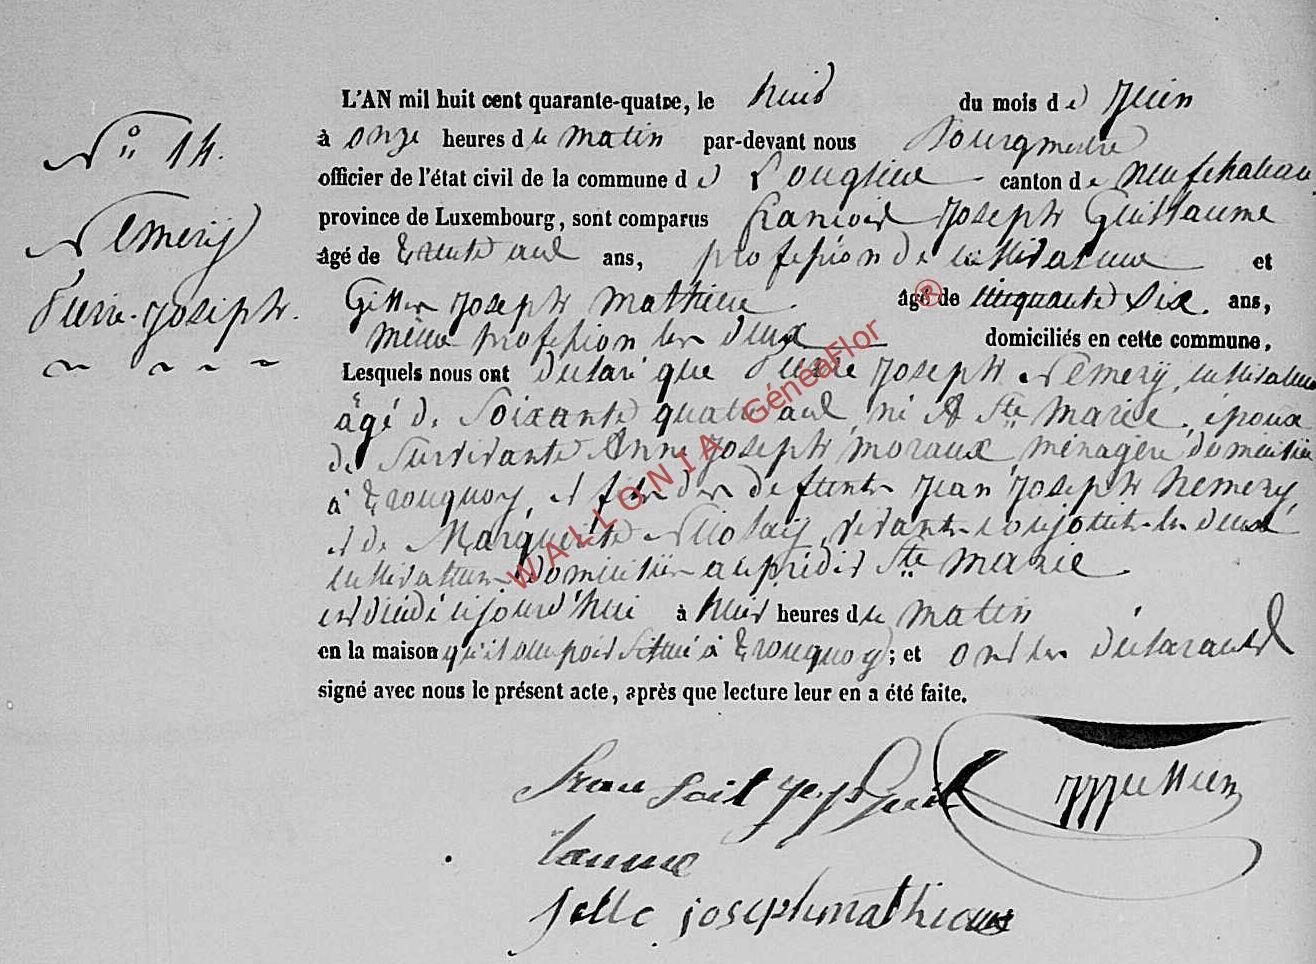 N° 14.
Nemery
Pierre-Joseph.
L'AN mil huit cent quarante-quatre, le huit du mois de Juin
à onze heures du matin par-devant nous Bourgmestre
officier de l'état civil de la commune de Longlier canton de neufchateau
province de Luxembourg, sont comparus francois Joseph Guillaume
âgé de trente ans, profession de cultivateur et
Joseph Mathieu âgé de cinquante Six ans,
même profession les deux domiciliés en cette commune.
Lesquels nous ont déclaré que Pierre Joseph Nemery, cultivateur
âgé de Soixante quatre ans, né à Ste Marie, époux
de Survivante Anne Joseph Moraux, ménagère domiciliée
à Tronquoy, et fils des défunts Jean Joseph Nemery,
et de Marguerite Nicolaij, vivants conjoints les deux
cultivateurs domiciliés au prédit Ste Marie.
est décédé aujourd'hui à huit heures du matin
en la maison qu'il occupoit Située à Tronquoy; et ont les déclarants
signé avec nous le présent acte, après que lecture leur en a été faite.
Guil
laume
joseph mathieu
WALLONIA GénéaFlor ®